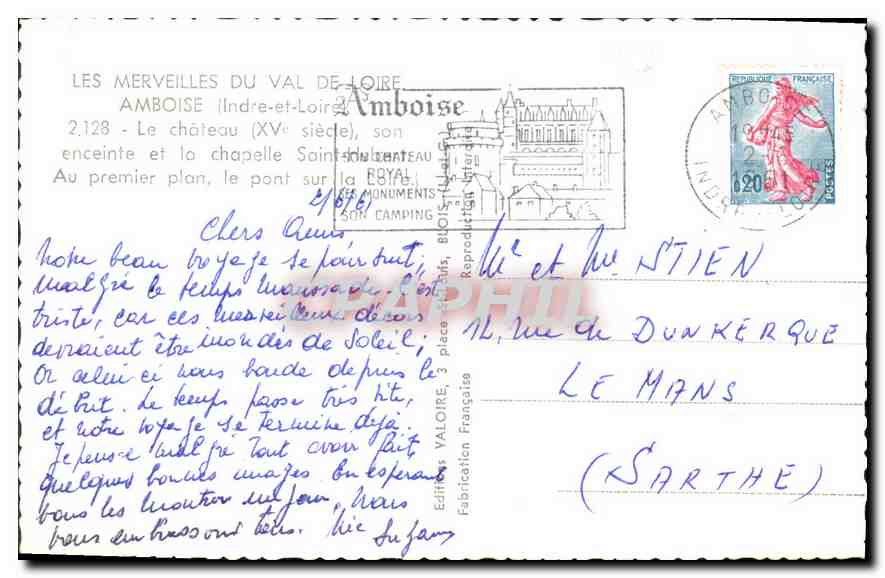 LES MERVEILLES DU VAL DE LOIRE
AMBOISE (Indre-et-Loire)
2.128 - Le château (XVe siècle), son
enceinte et la chapelle Saint-Hubert.
Au premier plan, le pont sur la Loire.
Amboise
SON CHATEAU
ROYAL
SES MONUMENTS
SON CAMPING
REPUBLIQUE FRANÇAISE
0,20
POSTES
AMBOISE
INDRE LOIRE
2/6/61
Chers Amis
Notre beau voyage se poursuit,
malgré le temps maussade. C'est
triste, car ces merveilleux décors
devraient être inondés de Soleil;
Or celui ci nous boude depuis le
début. Le temps passe très vite,
et notre voyage se termine déjà.
Je pense malgré tout avoir fait
quelques bonnes images. En espérant
vous les montrer un jour, Nous
vous embrassons tous.
Suzanne
Editions VALOIRE, 3 place BLOIS
Fabrication Française
Reproduction Interdite
Mr et Me STIEN
12, rue de DUNKERQUE
LE MANS
(SARTHE)
CPAPHIL